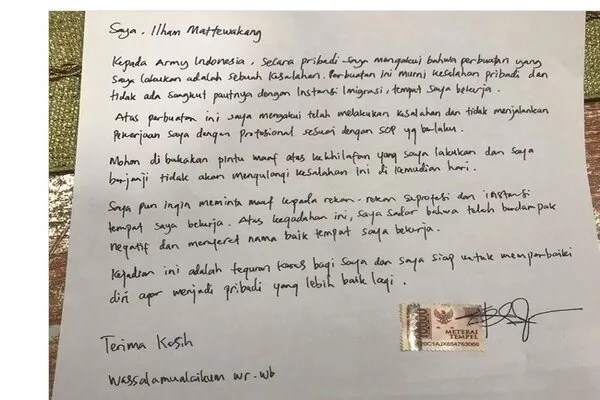 Saya. Ilham Mattewakang
Kepada Army Indonesia, secara pribadi saya mengakui bahwa perbuatan yang
saya lakukan adalah sebuah kesalahan. Perbuatan ini murni kesalahan pribadi dan
tidak ada sangkut pautnya dengan Instansi Imigrasi, tempat saya bekerja.
Atas perbuatan ini saya mengakui telah melakukan kesalahan dan tidak menjalankan
Pekerjaan saya dengan Profesional sesuai dengan SOP yg berlaku.
Mohon di bukakan pintu maaf atas kekhilafan yang saya lakukan dan saya
berjanji tidak akan mengulangi kesalahan ini di kemudian hari.
Saya pun ingin meminta maaf kepada rekan-rekan seprofesi dan instansi
tempat saya bekerja. Atas kegaduhan ini, saya sadar bahwa telah berdampak
negatif dan menyeret nama baik tempat saya bekerja.
Kejadian ini adalah teguran keras bagi saya dan saya siap untuk memperbaiki
diri agar menjadi pribadi yang lebih baik lagi.
10000
METERAI
TEMPEL
Terima Kasih
Wassalamualaikum wr.wb